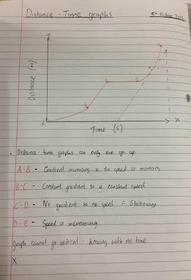 Distance - Time graphs
Distance (m)
Time (s)
• Distance - time graphs can only ever go up
A-B - Gradient increasing so the speed is increasing
B-C - Constant gradient so constant speed
C-D - No gradient so no speed = Stationary
D-E - Speed is increasing
graph cannot go vertical - moving with no time
X